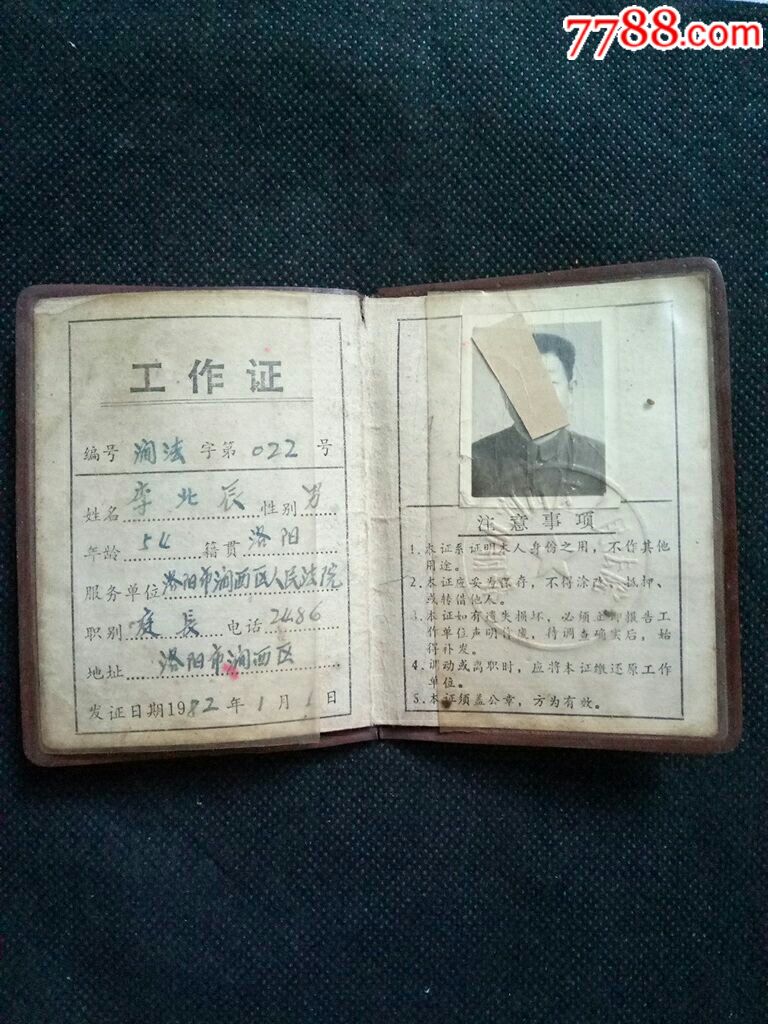 7788.com
工作证
编号 涧法 字第 022 号
姓名 李北辰 性别 男
年龄 54 籍贯 洛阳
服务单位 洛阳市涧西区人民法院
职别 庭长 电话 2486
地址 洛阳市涧西区
发证日期 1982 年 1 月 1 日
注意事项
1. 本证系证明本人身份之用，不作其他
用途。
2. 本证应妥当保存，不得涂改、抵押、
或转借他人。
3. 本证如有遗失损坏，必须立即报告工
作单位声明作废，待调查确实后，始
得补发。
4. 调动或离职时，应将本证缴还原工作
单位。
5. 本证须盖公章，方为有效。